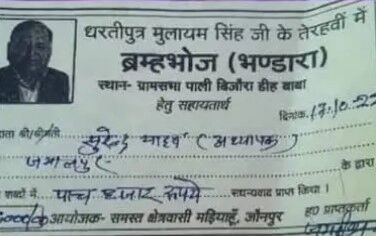 धरतीपुत्र मुलायम सिंह जी के तेरहवीं में
ब्रम्हभोज (भण्डारा)
स्थान- ग्रामसभा पाली बिजौरा डीह बाबा
हेतु सहायतार्थ
दिनांक. 17.10.22
दाता श्री/श्रीमती सुरेन्द्र यादव (अध्यापक)
जमालपुर के द्वारा
शब्दों में. पान्च हजार रूपये सधन्यवाद प्राप्त किया।
आयोजक- समस्त क्षेत्रवासी मड़ियाहूँ, जौनपुर
ह0 प्राप्तकर्ता